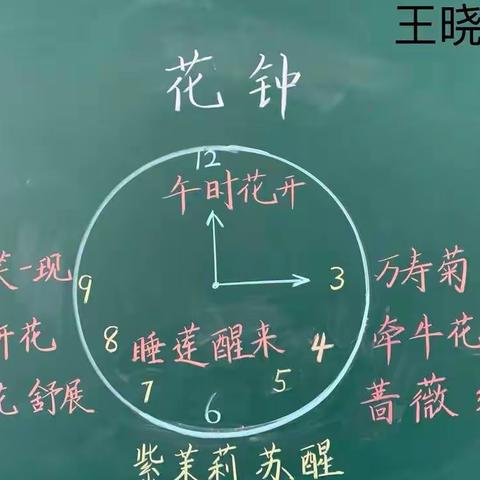 王晓
花钟
12
午时花开
笑一现
9
3
万寿菊
开花
8
睡莲醒来
4
牵牛花
花舒展
7
5
蔷薇
6
紫茉莉苏醒